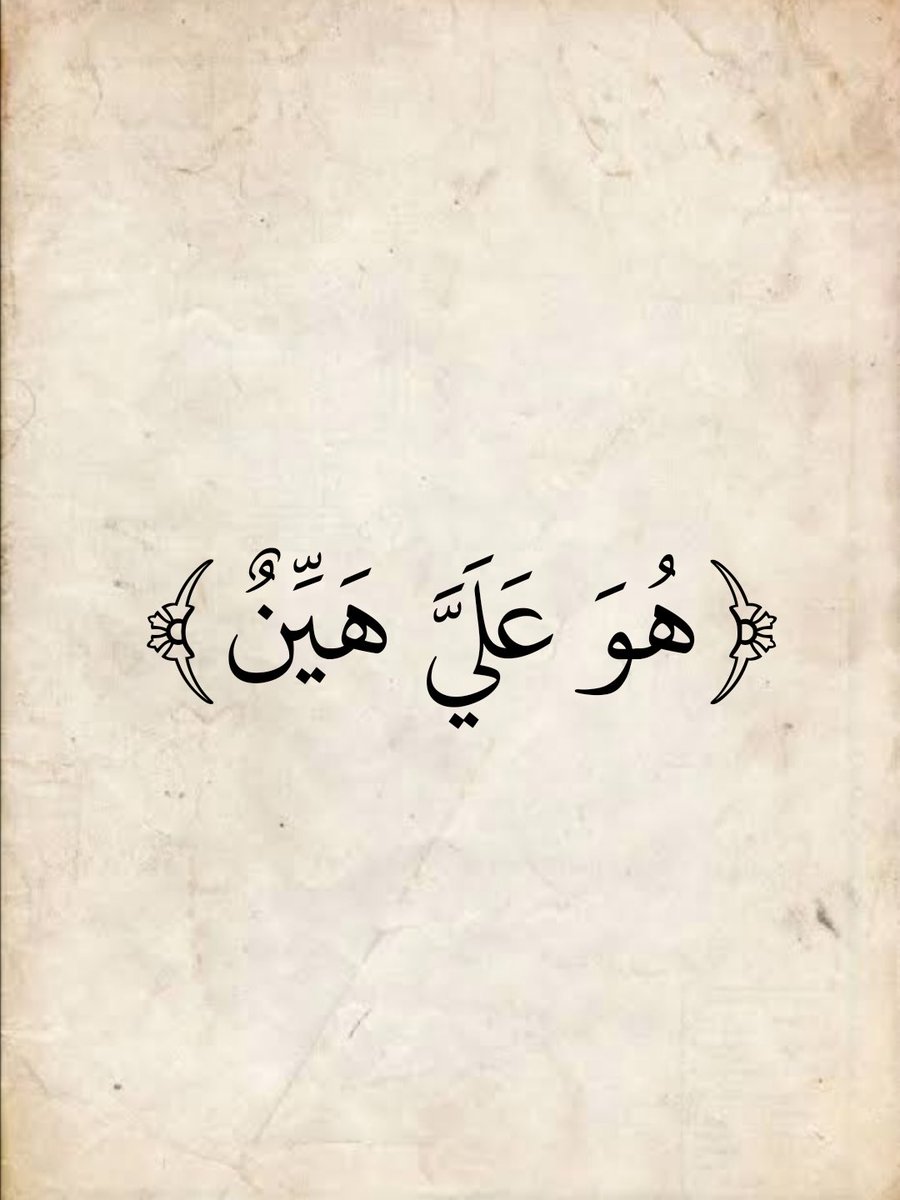 ﴿هُوَ عَلَيَّ هَيِّنٌ﴾